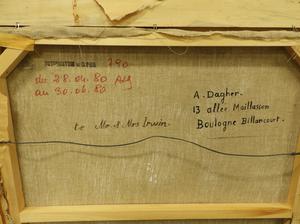 290
du 28.04.80 Alg
au 30.06.80
A. Dagher.
13 allée Maillasson
Boulogne Billancourt.
to Mr. & Mrs Irwin.